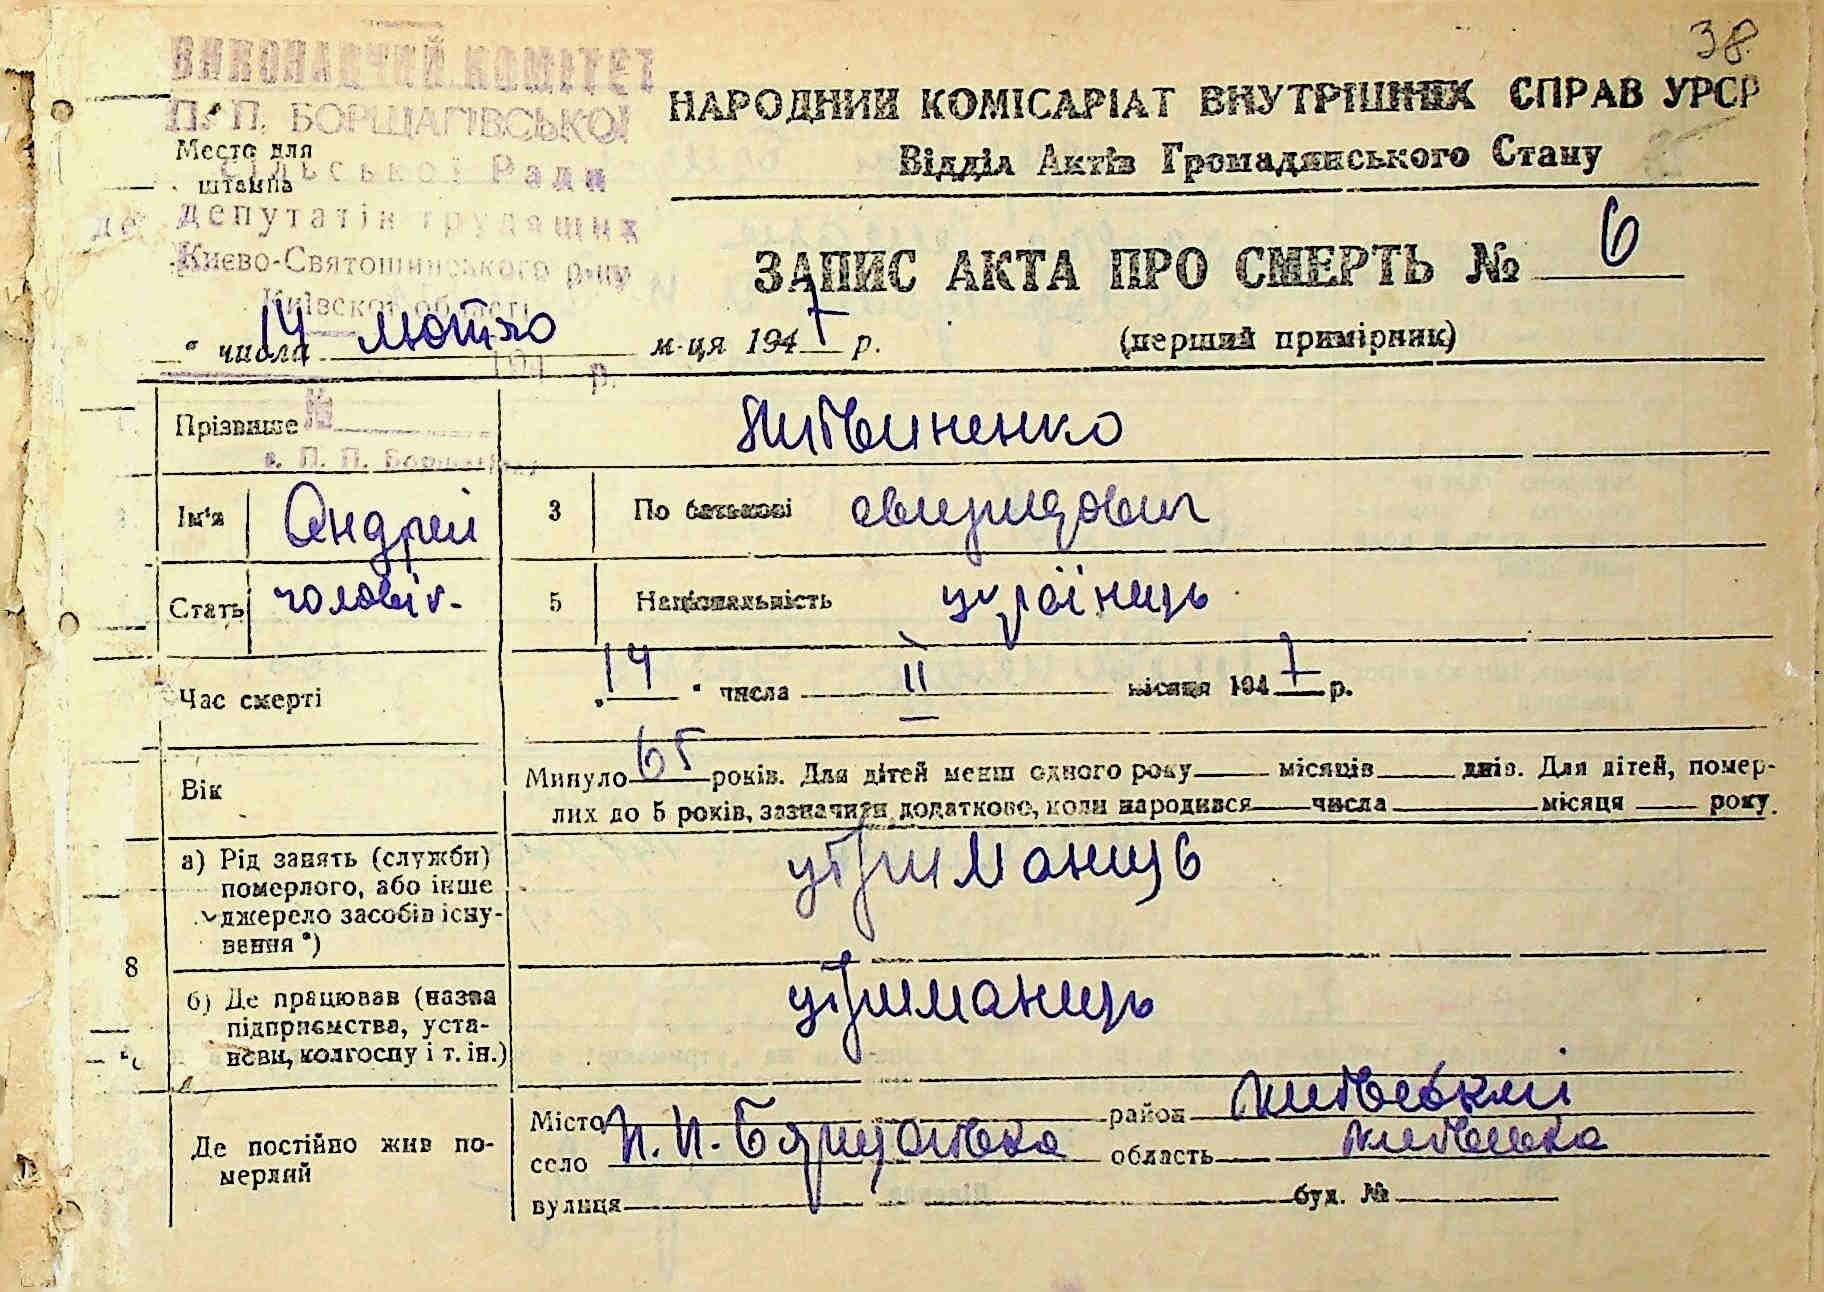 38
ВИКОНАВЧИЙ КОМІТЕТ
П. П. БОРЩАГІВСЬКОЇ
Сільської Ради
депутатів трудящих
Києво-Святошинського р-ну
Київскої області
194 р.
№
с. П. П. Борщагівка
Место для
штампа
НАРОДНИЙ КОМІСАРІАТ ВНУТРІШНІХ СПРАВ УРСР
Відділ Актів Громадянського Стану
ЗАПИС АКТА ПРО СМЕРТЬ № 6
14 " числа лютого м-ця 1947 р. (перший примірник)
Прізвище Литвиненко
Ім'я Андрей 3 По батькові Свиридович
Стать чоловік- 5 Національність українець
Час смерті „14 " числа II місяця 1947 р.
Вік Минуло 65 років. Для дітей менш одного року місяців днів. Для дітей, помер-
лих до 5 років, зазначити додатково, коли народився числа місяця року.
8 а) Рід занять (служби)
померлого, або інше
джерело засобів існу-
вення *)
утриманець
б) Де працював (назва
підприємства, уста-
нови, колгоспу і т. ін.)
утриманець
Де постійно жив по-
мерлий
Місто район
село П. П. Борщагівка область
вулиця буд. №